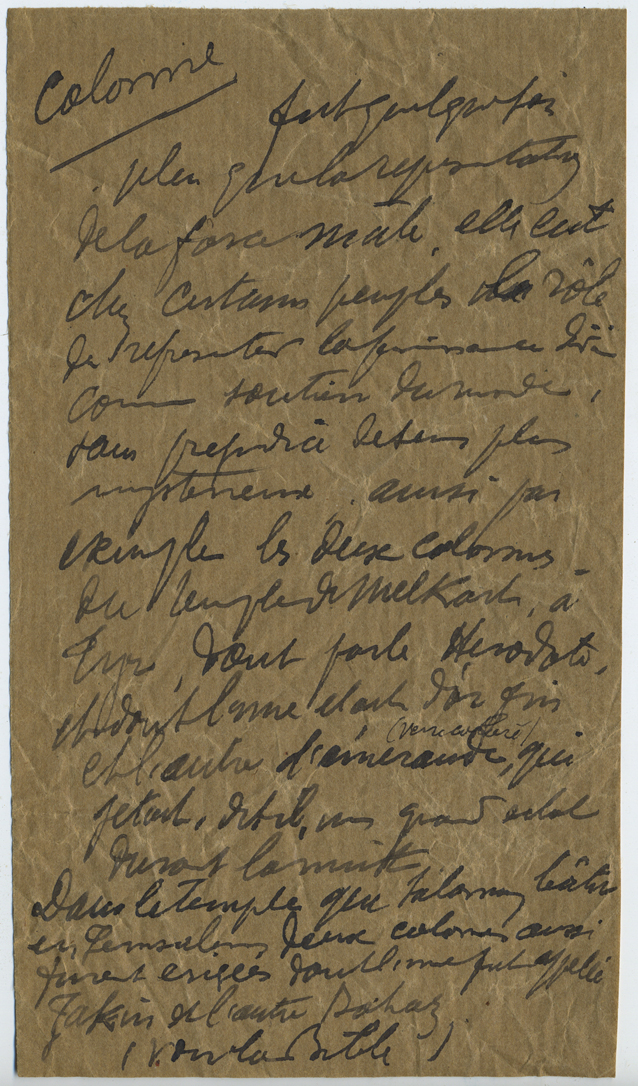 Colonne
fut quelquefois
plus que la representation
de la force mâle, elle eut
chez certains peuples le rôle
de representer la puissance divine
comme soutien du monde,
sans prejudice de sens plus
mysterieux. ainsi par
exemple les deux colonnes
du temple de Melkart, à
Tyr, dont parle Herodote,
et dont l'une etait d'or fin
(verre coloré)
et l'autre d'émeraude, qui
jetait, dit-il, un grand eclat
durant la nuit.
Dans le temple que Salomon bâtit
en Jerusalem deux colonnes aussi
furent erigées dont l'une fut appelée
Jakin et l'autre Bohaz.
(voir la Bible)